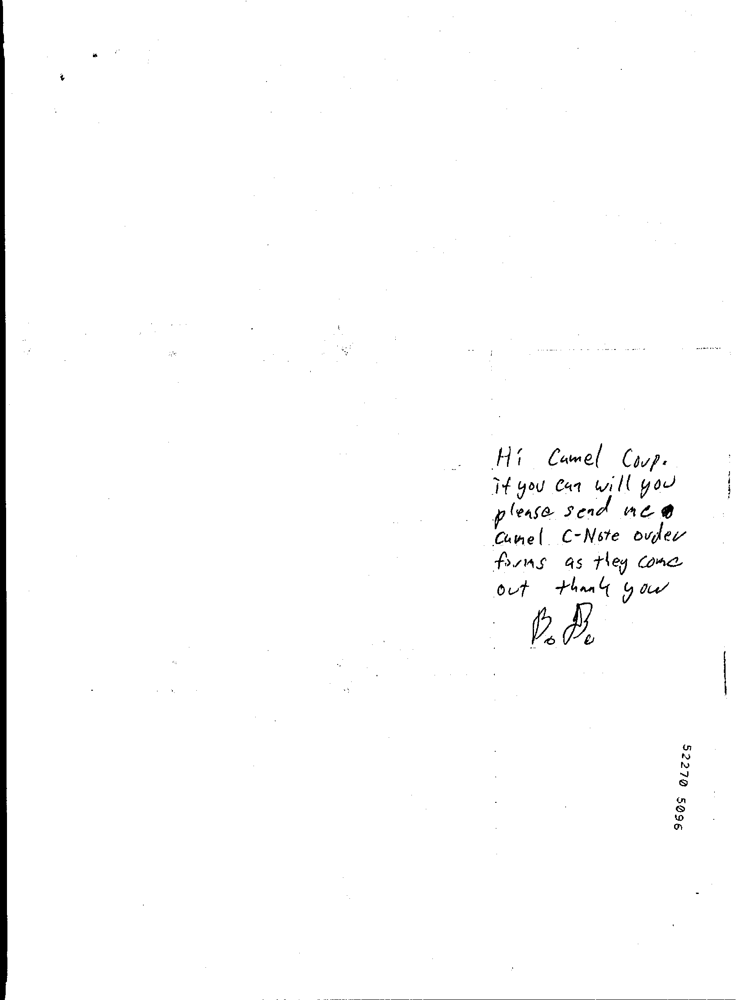 Hi Camel Corp.
if you can will you
please send me
camel C-Note order
forms as they come
out thank you
52270 5096